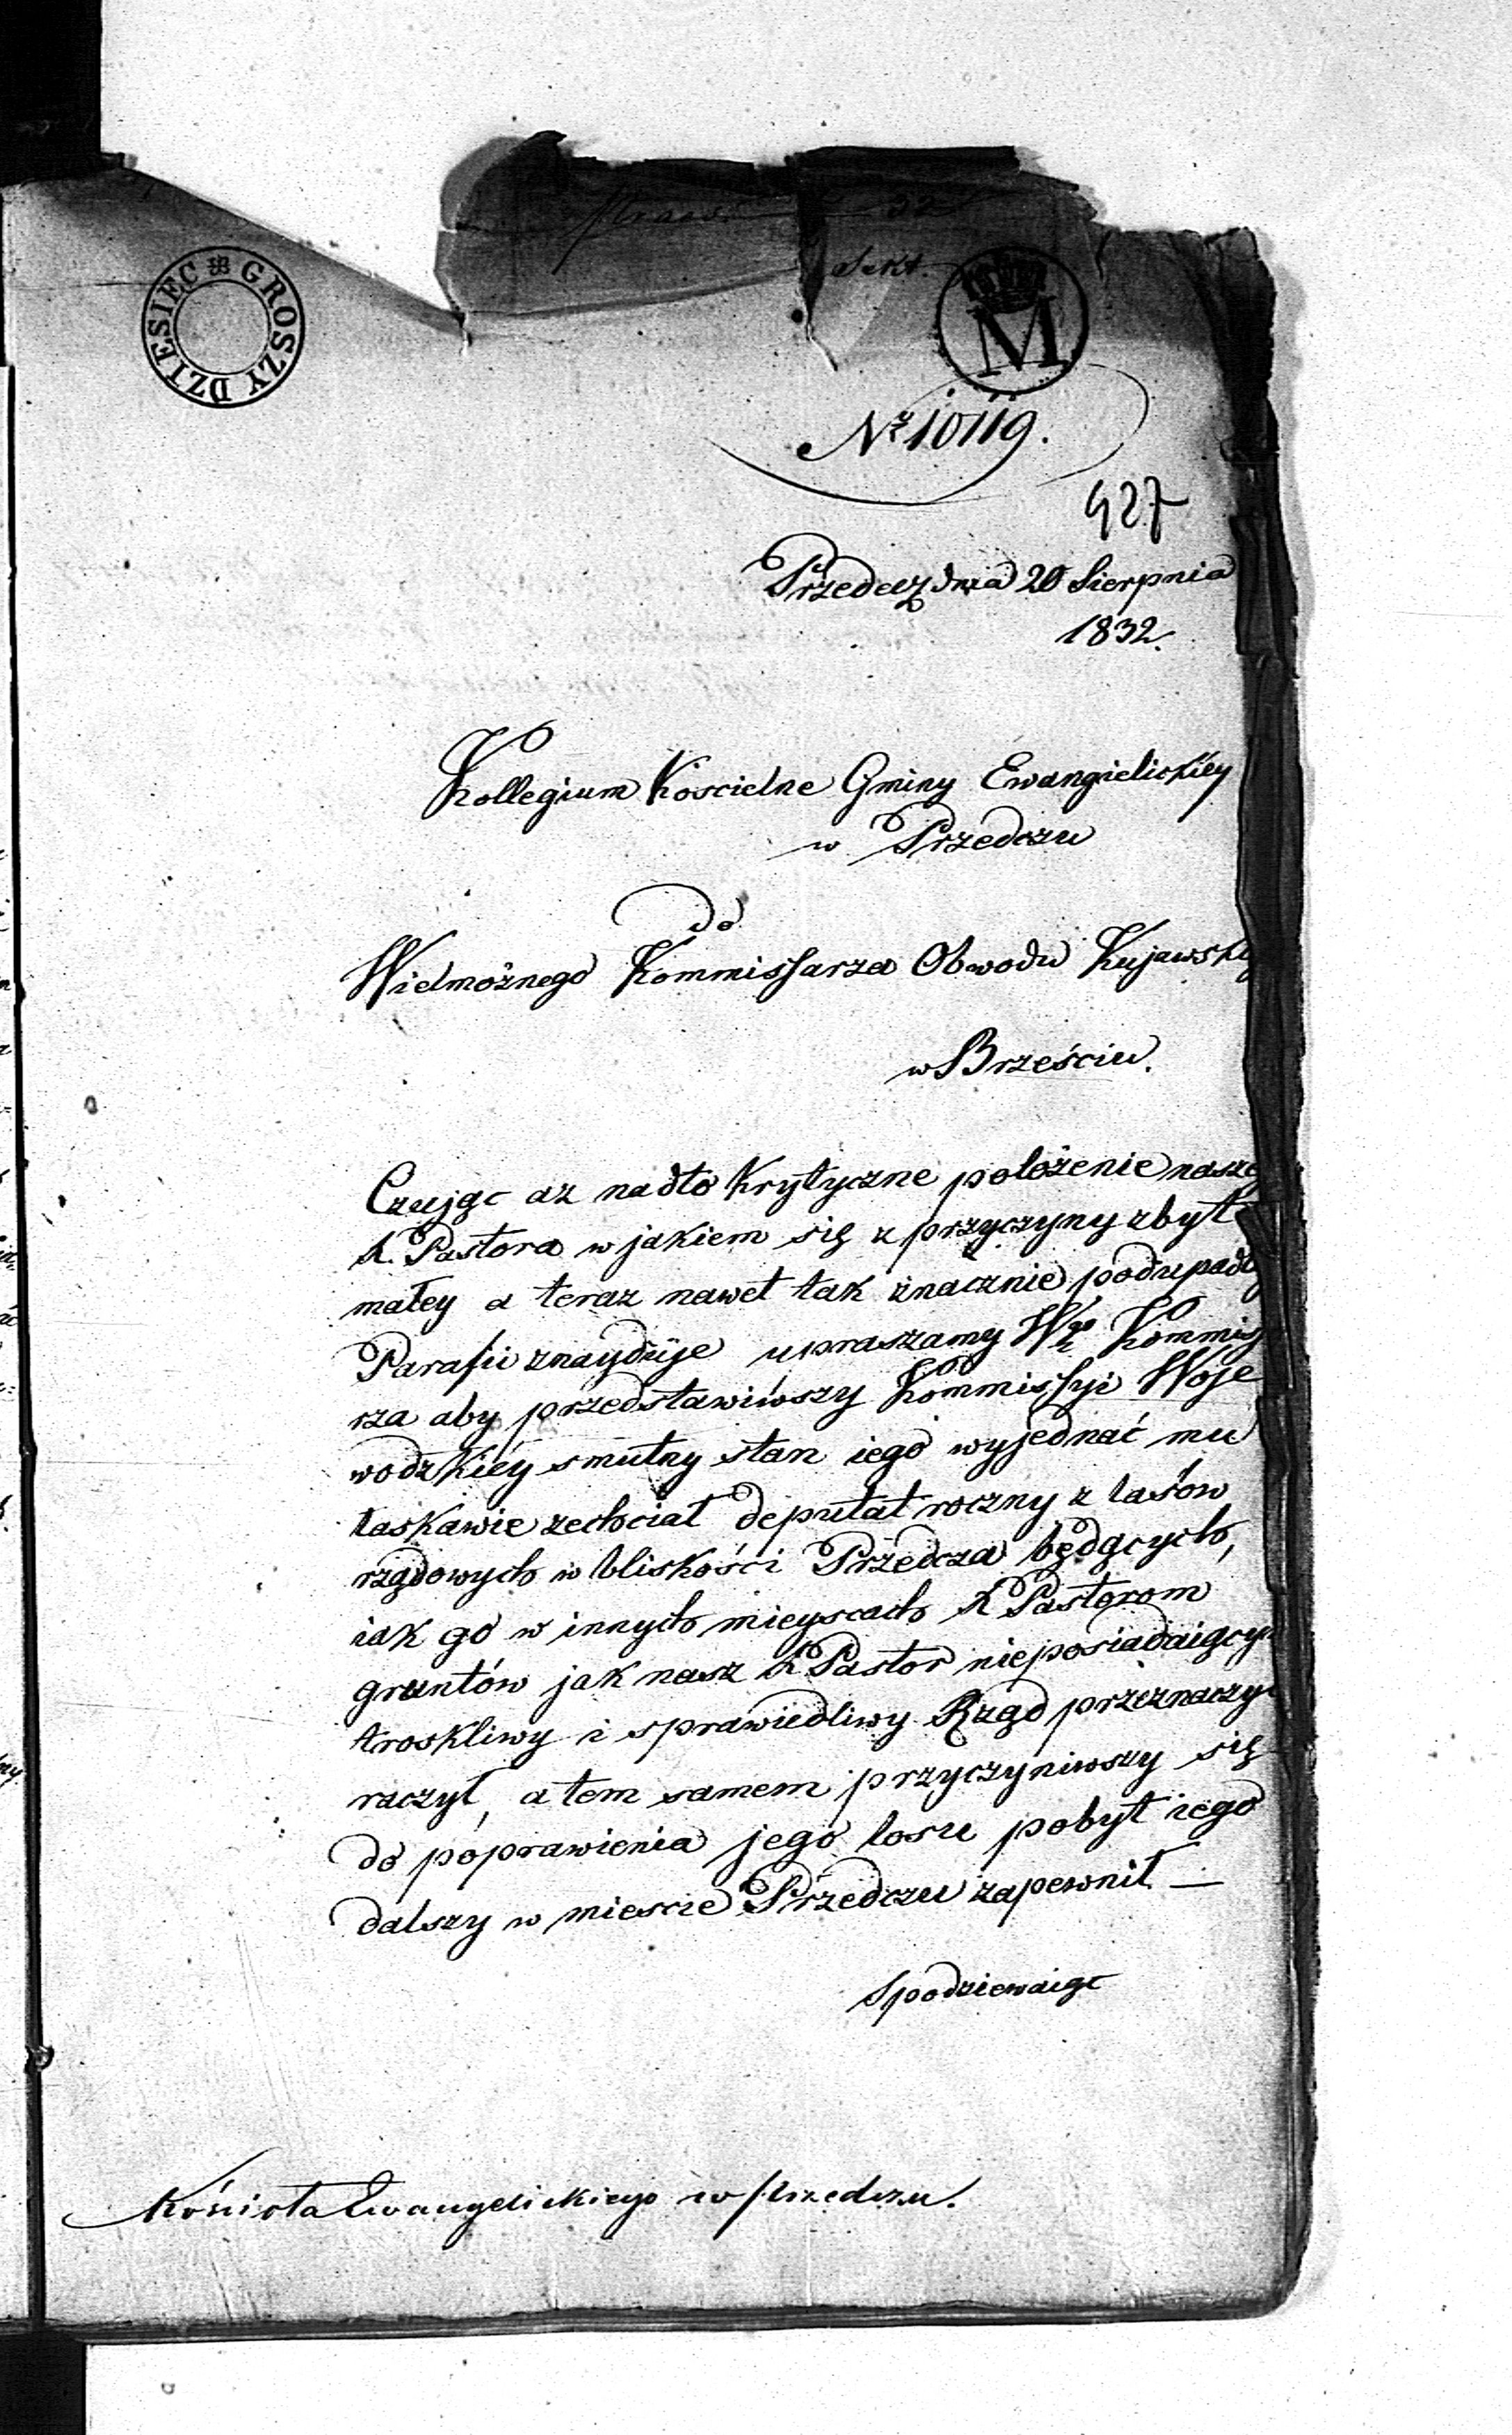 32
Sekt.
DZIESIEC GROSZY
M
Nr 10119.
427
Przedecz dnia 20 Sierpnia
1832.
Kollegium Koscielne Gminy Ewangielickiey
w Przedczu
do
Wielmożnego Kommissarza Obwodu Kujawski
w Brześciu.
Czując az nadto Krytyczne położenie nasze
X. Pastora w jakiem się z przyczyny zbyt
małey a teraz nawet tak znacznie podupadł
Parafii znayduje upraszamy Wgo Kommiss
rza aby przedstawiwszy Kommissyi Woje
wodzkiéy smutny stan iego wyjednać mu
łaskawie zechciał deputat roczny z lasów
rządowych w bliskości Przedcza będących,
iak go w innych mieyscach X Pastorom
gruntów jak nasz X Pastor nieposiadaiący
troskliwy i sprawiedliwy Rząd przeznaczy
raczył, a tem samem przyczyniwszy się
do poprawienia jego losu pobyt iego
dalszy w miescie Przedczu zapewnił —
Spodziewaiąc
Kościoła Ewangelickiego w Przedczu.